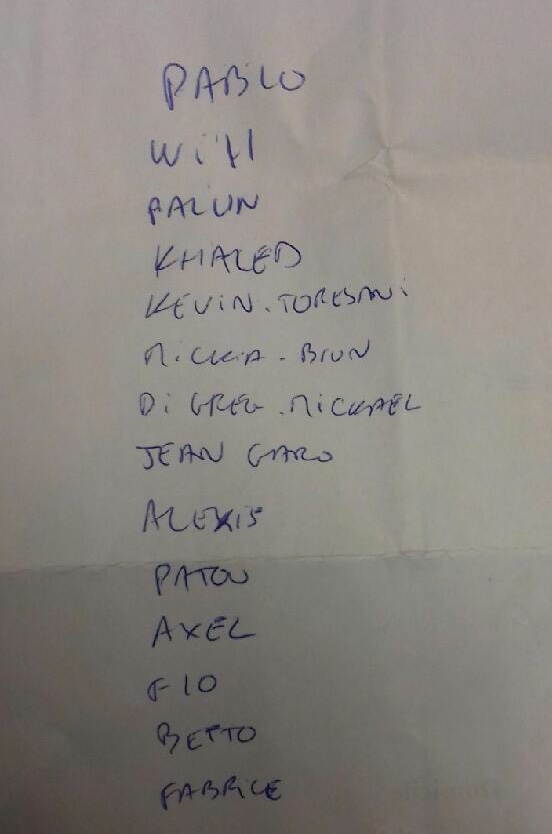 PABLO
Will
FALUN
KHALED
KEVIN.TORESANi
MiCKA-BRUN
Di GREG.MiCKAEL
JEAN GARO
ALEXIS
PATOU
AXEL
FLO
BETTO
FABRiCE